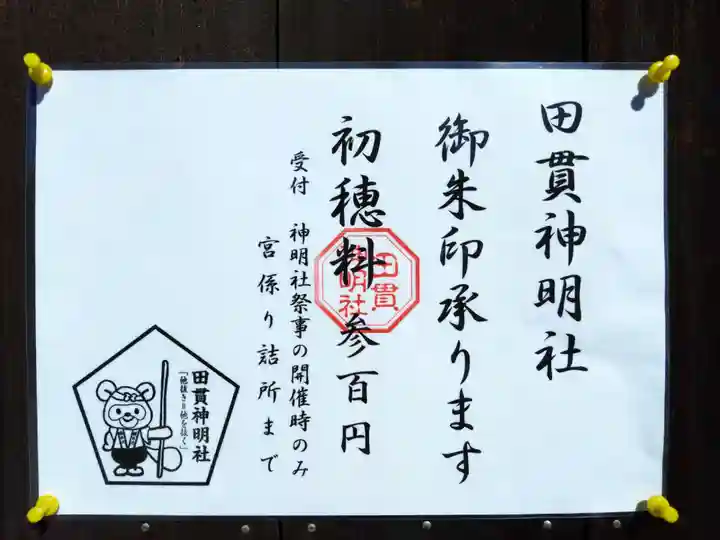 田貫神明社
御朱印承ります
初穂料 参百円
受付 神明社祭事の開催時のみ
宮係り詰所まで
田貫
神明社
田貫神明社
「他抜きは他を抜く」